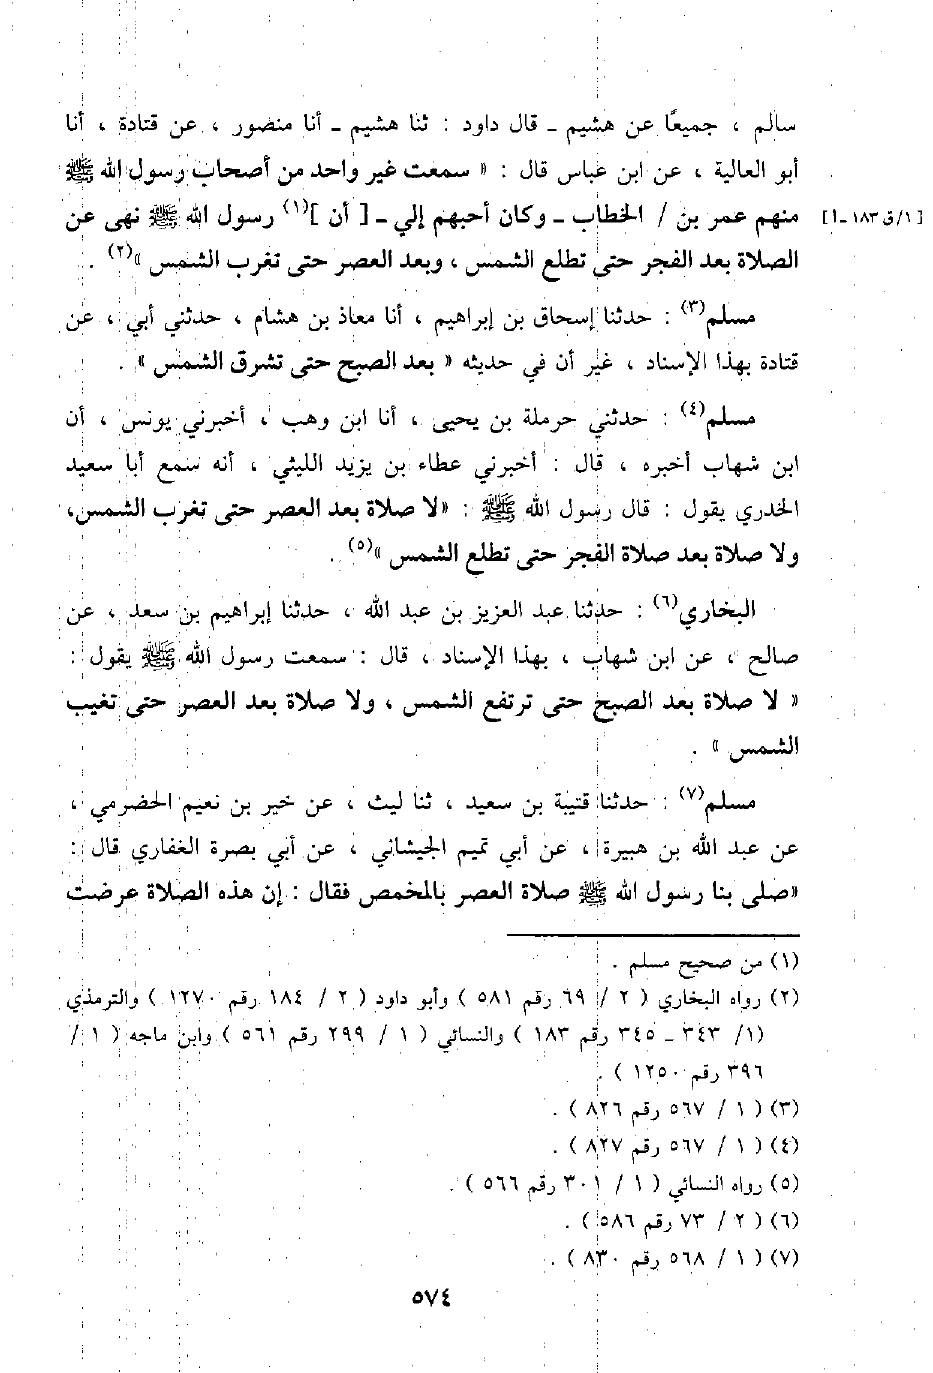 سالم ، جميعًا عن هشيم ـ قال داود : ثنا هشيم ـ أنا منصور ، عن قتادة ، أنا
أبو العالية ، عن ابن عباس قال : « سمعت غير واحد من أصحاب رسول الله ﷺ
منهم عمر بن / الخطاب ـ وكان أحبهم إلي ـ [ أن ](١) رسول الله ﷺ نهى عن
[ ١/ق ١٨٣ـأ ]
الصلاة بعد الفجر حتى تطلع الشمس ، وبعد العصر حتى تغرب الشمس »(٢) .
مسلم(٣) : حدثنا إسحاق بن إبراهيم ، أنا معاذ بن هشام ، حدثني أبي ، عن
قتادة بهذا الإسناد ، غير أن في حديثه « بعد الصبح حتى تشرق الشمس » .
مسلم(٤) : حدثني حرملة بن يحيى ، أنا ابن وهب ، أخبرني يونس ، أن
ابن شهاب أخبره ، قال : أخبرني عطاء بن يزيد الليثي ، أنه سمع أبا سعيد
الخدري يقول : قال رسول الله ﷺ : «لا صلاة بعد العصر حتى تغرب الشمس،
ولا صلاة بعد صلاة الفجر حتى تطلع الشمس »(٥) .
البخاري(٦) : حدثنا عبد العزيز بن عبد الله ، حدثنا إبراهيم بن سعد ، عن
صالح ، عن ابن شهاب ، بهذا الإسناد ، قال : سمعت رسول الله ﷺ يقول :
« لا صلاة بعد الصبح حتى ترتفع الشمس ، ولا صلاة بعد العصر حتى تغيب
الشمس » .
مسلم(٧) : حدثنا قتيبة بن سعيد ، ثنا ليث ، عن خير بن نعيم الحضرمي ،
عن عبد الله بن هبيرة ، عن أبي تميم الجيشاني ، عن أبي بصرة الغفاري قال :
«صلى بنا رسول الله ﷺ صلاة العصر بالمخمص فقال : إن هذه الصلاة عرضت
(١) من صحيح مسلم .
(٢) رواه البخاري ( ٢ / ٦٩ رقم ٥٨١ ) وأبو داود ( ٢ / ١٨٤ رقم ١٢٧٠ ) والترمذي
(١/ ٣٤٣ ـ ٣٤٥ رقم ١٨٣ ) والنسائي ( ١ / ٢٩٩ رقم ٥٦١ ) وابن ماجه ( ١ /
٣٩٦ رقم ١٢٥٠ ) .
(٣) ( ١ / ٥٦٧ رقم ٨٢٦ ) .
(٤) ( ١ / ٥٦٧ رقم ٨٢٧ ) .
(٥) رواه النسائي ( ١ / ٣٠١ رقم ٥٦٦ ) .
(٦) ( ٢ / ٧٣ رقم ٥٨٦ ) .
(٧) ( ١ / ٥٦٨ رقم ٨٣٠ ) .
٥٧٤